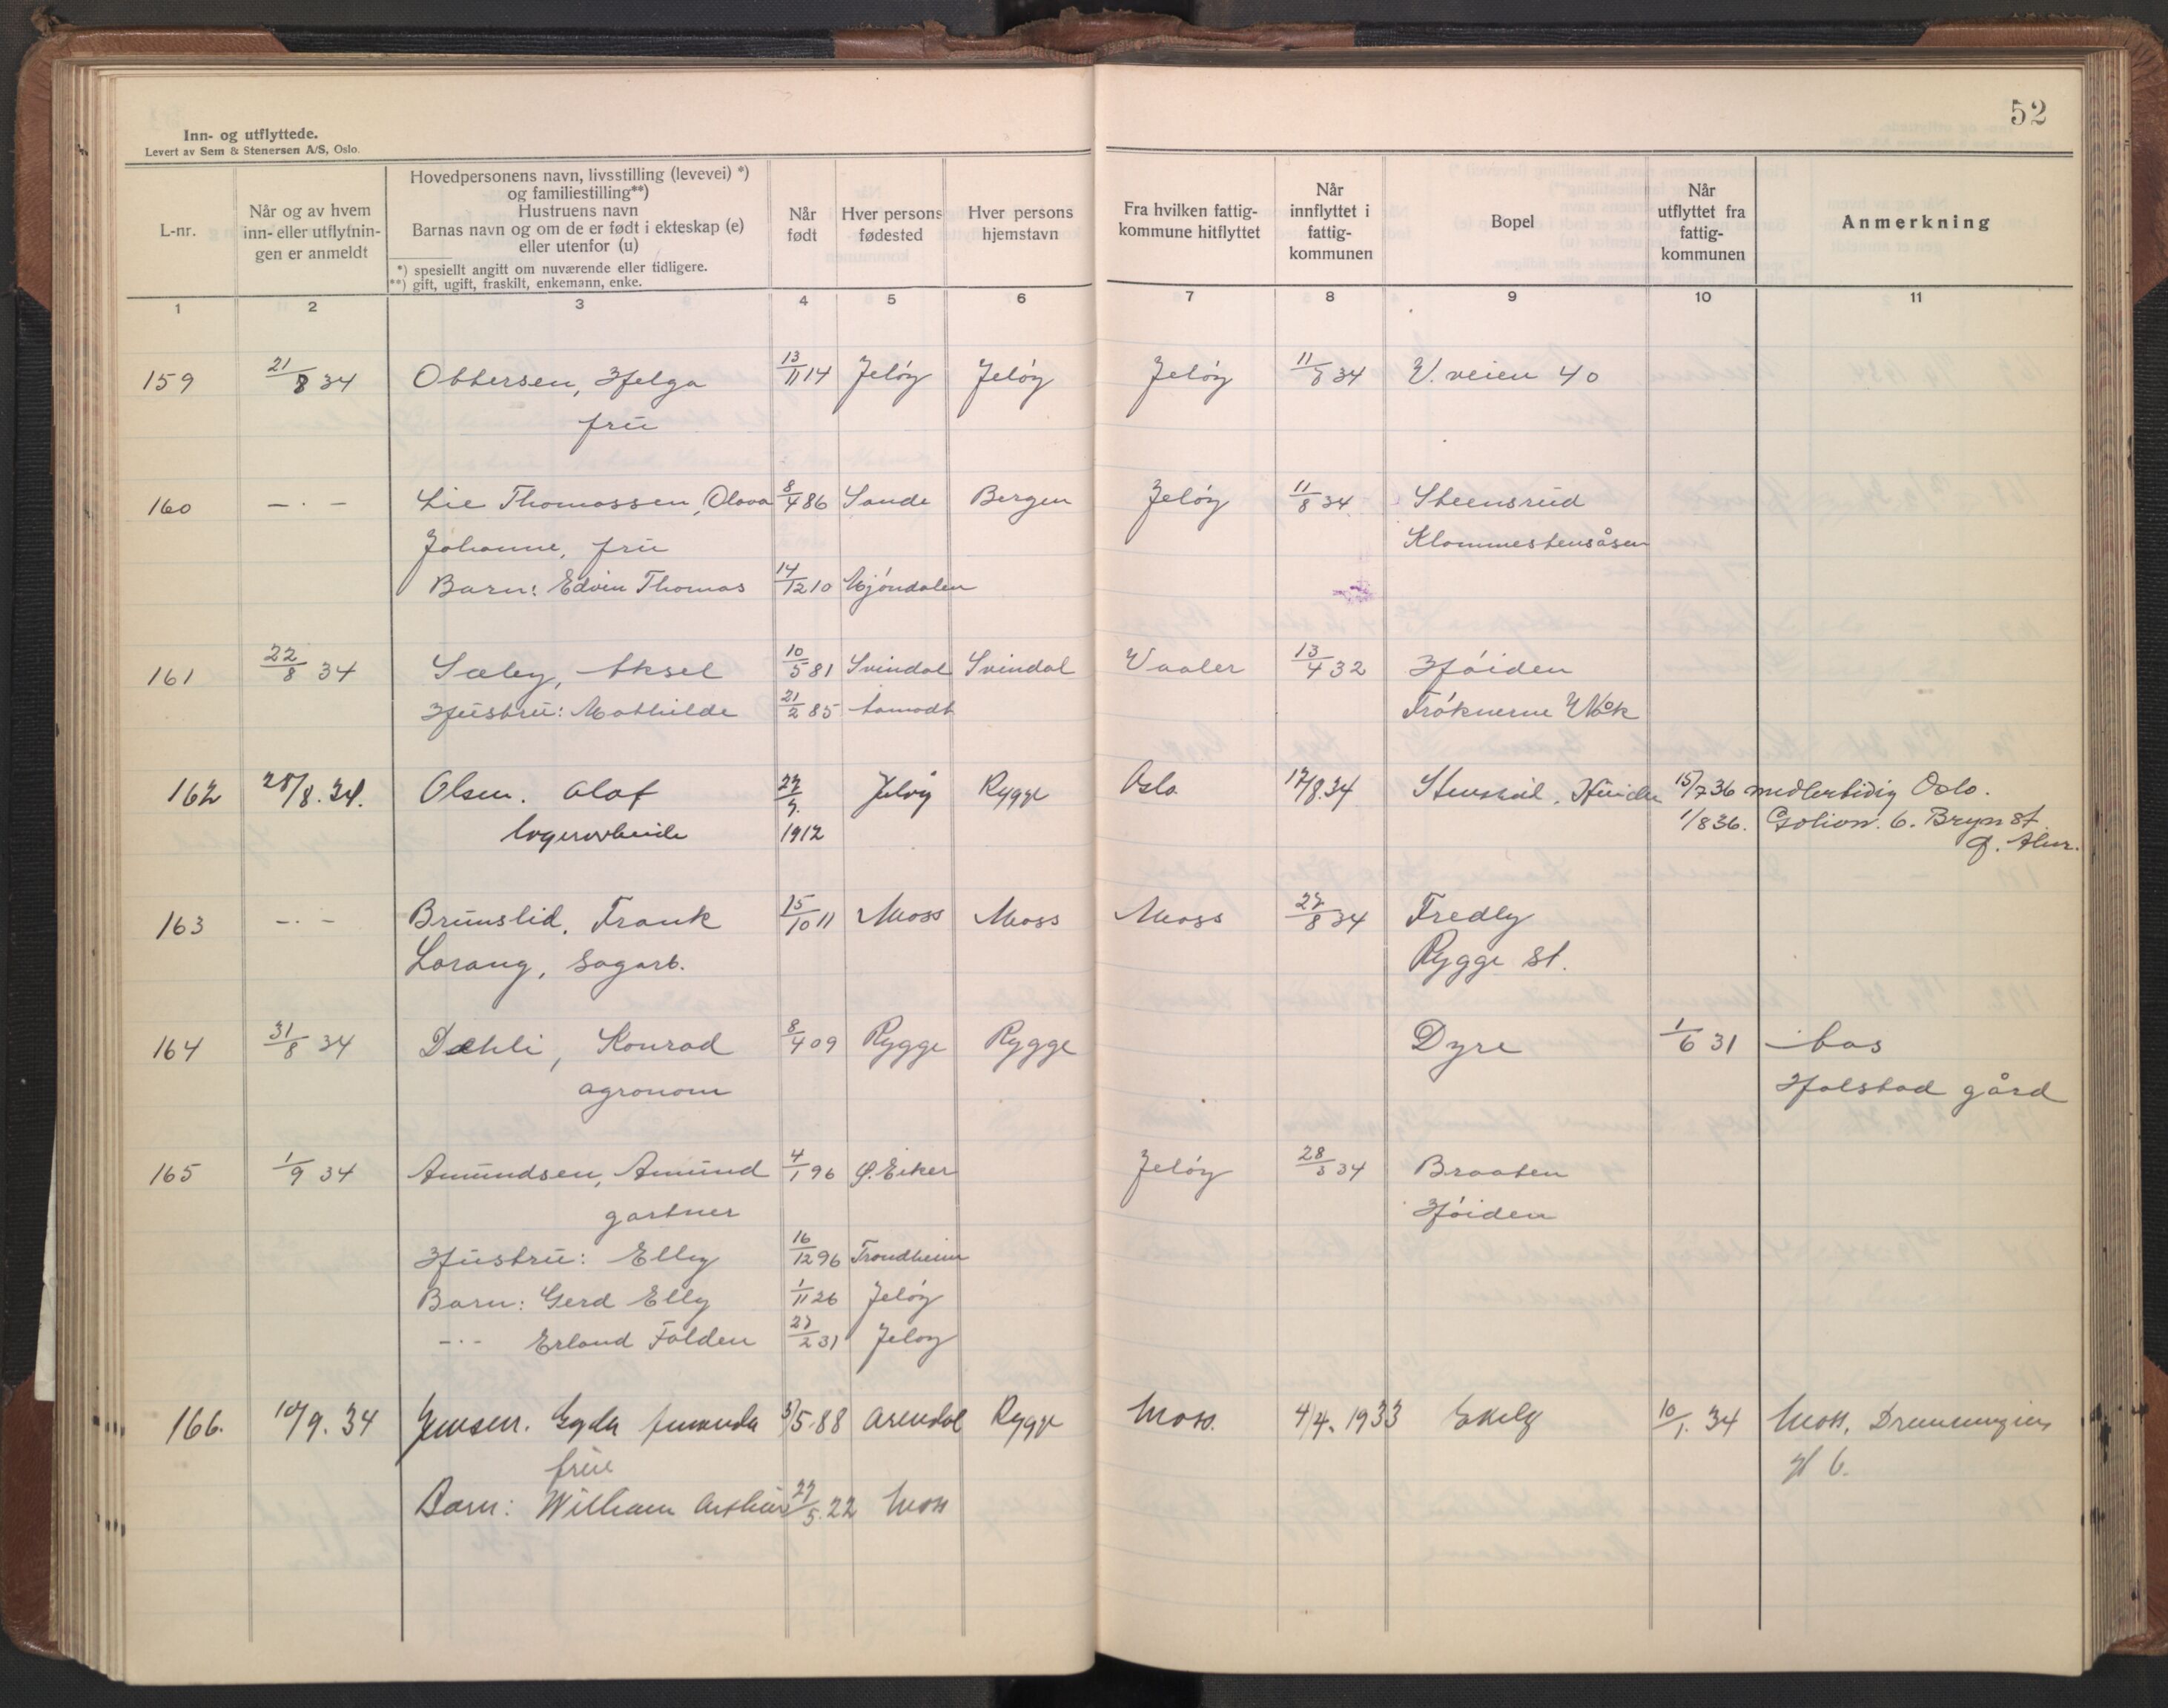 52
Inn- og utflyttede.
Levert av Sem & Stenersen A/S, Oslo.
L-nr.
Når og av hvem
inn- eller utflytnin-
gen er anmeldt
Hovedpersonens navn, livsstilling (levevei) *)
og familiestilling**)
Hustruens navn
Barnas navn og om de er født i ekteskap (e)
eller utenfor (u)
*) spesielt angitt om nuværende eller tidligere.
**) gift, ugift, fraskilt, enkemann, enke.
Når
født
Hver persons
fødested
Hver persons
hjemstavn
Fra hvilken fattig-
kommune hitflyttet
Når
innflyttet i
fattig-
kommunen
Bopel
Når
utflyttet fra
fattig-
kommunen
Anmerkning
1 2 3 4 5 6 7 8 9 10 11
159 21/8 34 Ottersen, Helga 13/11 14 Jeløy Jeløy Jeløy 11/8 34 V. veien 40
frü
160 — · — Lie Thomassen, Olava 8/4 86 Sande Bergen Jeløy 11/8 34 Steensrüd
Johanne, frü Klommestensåsen
Barn: Edvin Thomas 14/12 10 Mjöndalen
161 22/8 34 Sæby, Aksel 10/5 81 Svindal Svindal Vaaler 13/4 32 Höiden
Hüstrü: Mathilde 21/2 85 Aamodt Fröknerne
162 28/8. 34. Olsen. Olaf 27/9. 1912 Jeløy Rygge Oslo 17/8. 34 15/7 36 medlertidig Oslo.
1/8 36. 6. Bryn St.
163 — · — Brünslid, Frank 15/10 11 Moss Moss Moss 27/8 34 Fredly
Lorang, sagarb. Rygge st.
164 31/8 34 Dæhli, Konrad 8/4 09 Rygge Rygge Dyre 1/6 31 Aas
agronom Holstad gård
165 1/9 34 Amündsen, Amünd 4/1 96 Ø. Eiker Jeløy 28/3 34 Braaten
gartner Höiden
Hüstrü: Elly 16/12 96 Trondheim
Barn: Gerd Elly 1/11 26 Jeløy
— · — Erland Folden 27/2 31 Jeløy
166. 10/9. 34 Jensen. Gyda Amanda 3/5. 88 Arendal Rygge Moss. 4/4. 1933 Ekely 10/1. 34 Moss, Dronningens
früe gt 6.
Barn: William Arthür 27/5. 22 Moss